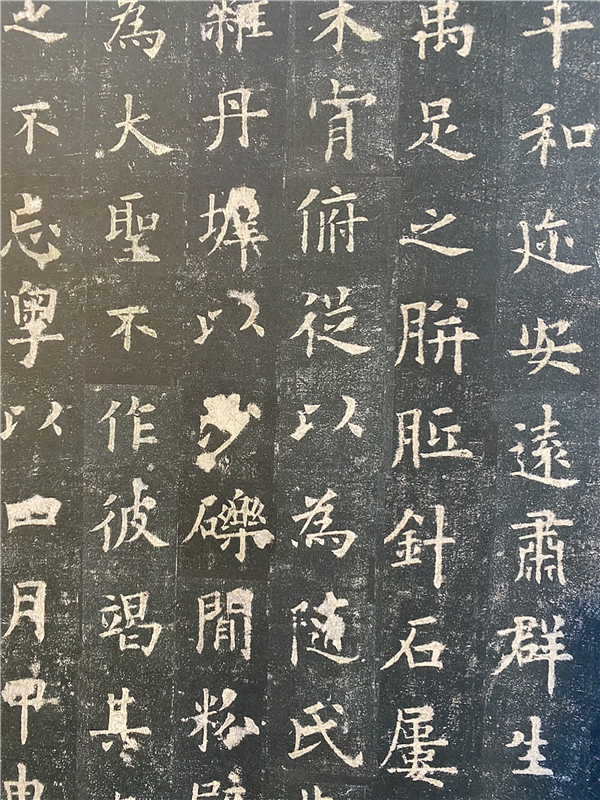 年和迩安遠肅群生
禹足之胼胝針石屢
未肯俯從以為隨氏
雜丹墀以沙礫間粉壁
為大聖不作彼竭其
之不忘粵以四月甲申